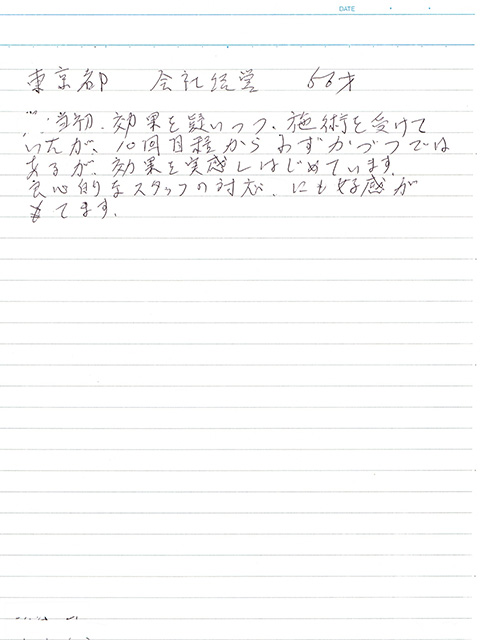 DATE
東京都 会社経営 56才
当初、効果を疑いつつ、施術を受けて
いたが、10回目程からわずかづつでは
あるが、効果を実感しはじめています。
良心的なスタッフの対応、にも好感が
もてます。